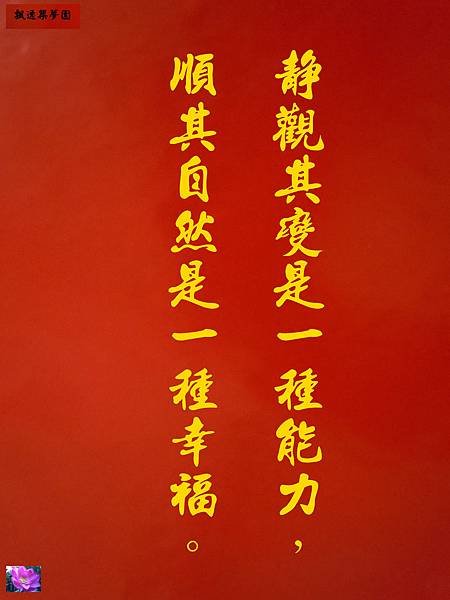 飄逸築夢園
静觀其變是一種能力，
順其自然是一種幸福。